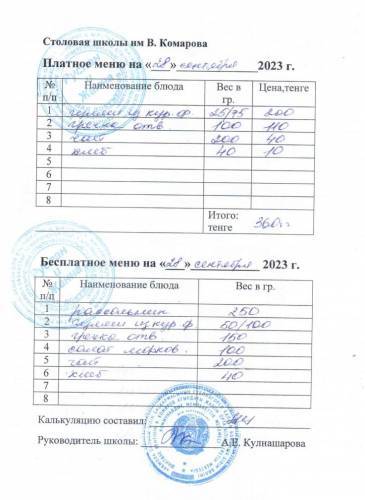 Столовая школы им В. Комарова
Платное меню на «28» сентября 2023 г.
№ п/п Наименование блюда Вес в гр. Цена,тенге
1 гуляш из кур.ф 25/75 200
2 гречка отв. 100 110
3 чай 200 40
4 хлеб 40 10
5
6
7
8
Итого: тенге 360тг
Бесплатное меню на «28» сентября 2023 г.
№ п/п Наименование блюда Вес в гр.
1 рассольник 250
2 гуляш из кур ф 50/100
3 гречка отв 150
4 салат морков. 100
5 чай 200
6 хлеб 40
7
8
Калькуляцию составил:
Руководитель школы: А.Е. Кулнашарова